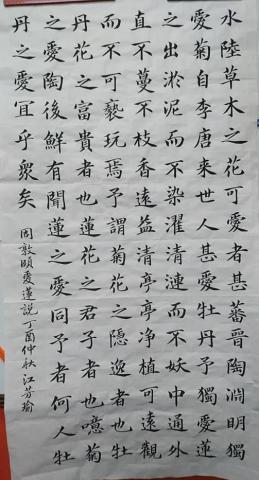 水陸草木之花可愛者甚蕃晉陶淵明獨
愛菊自李唐來世人甚愛牡丹予獨愛蓮
之出淤泥而不染濯清漣而不妖中通外
直不蔓不枝香遠益清亭亭净植可遠觀
而不可褻玩焉予謂菊花之隱逸者也牡
丹花之富貴者也蓮花之君子者也噫菊
之愛陶後鮮有聞蓮之愛同予者何人牡
丹之愛宜乎衆矣
周敦頤愛蓮說丁酉仲秋江芳瑜